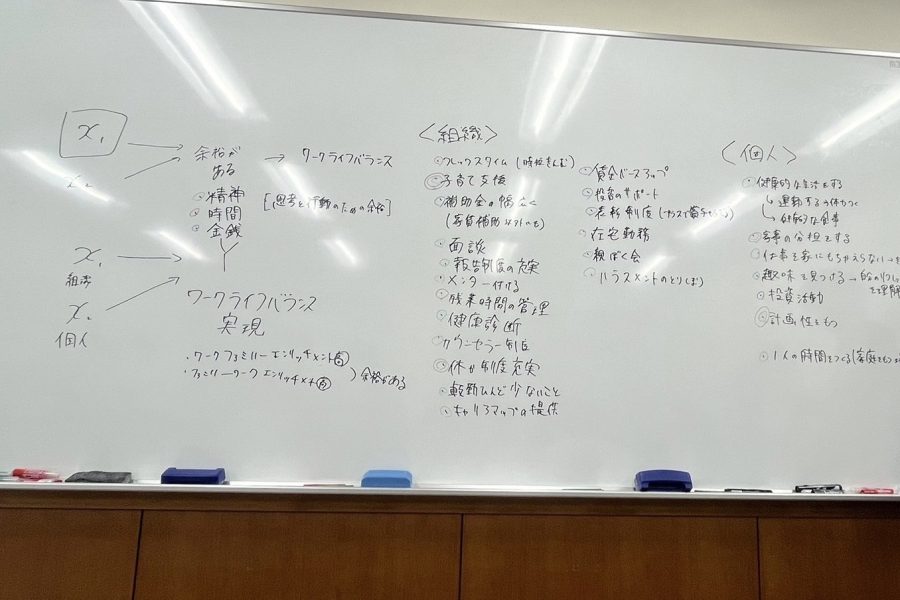 x₁
x₂
余裕が
ある
→ ワークライフバランス
・精神
・時間
・金銭
[思考と行動のための余裕]
Y
x₁
組織
x₂
個人
ワークライフバランス
実現
・ワークファミリーエンリッチメント高
・ファミリーワークエンリッチメント高
余裕がある
〈組織〉
フレックスタイム (時短きんむ)
子育て支援
補助金の幅広く
(家賃補助以外にも)
面談
報告制度の充実
メンター付ける
残業時間の管理
健康診断
カウンセラー制度
休か制度充実
転勤ひんど少ないこと
キャリアマップの提供
賃金ベースアップ
投資のサポート
表彰制度
在宅勤務
親ぼく会
ハラスメントのとりしまり
〈個人〉
健康的な生活をする
→ 運動する習慣をつく
→ 健康的な食事
家事の分担をする
仕事を家にもちかえらない
趣味を見つける →
投資活動
計画性をもつ
1人の時間をつくる